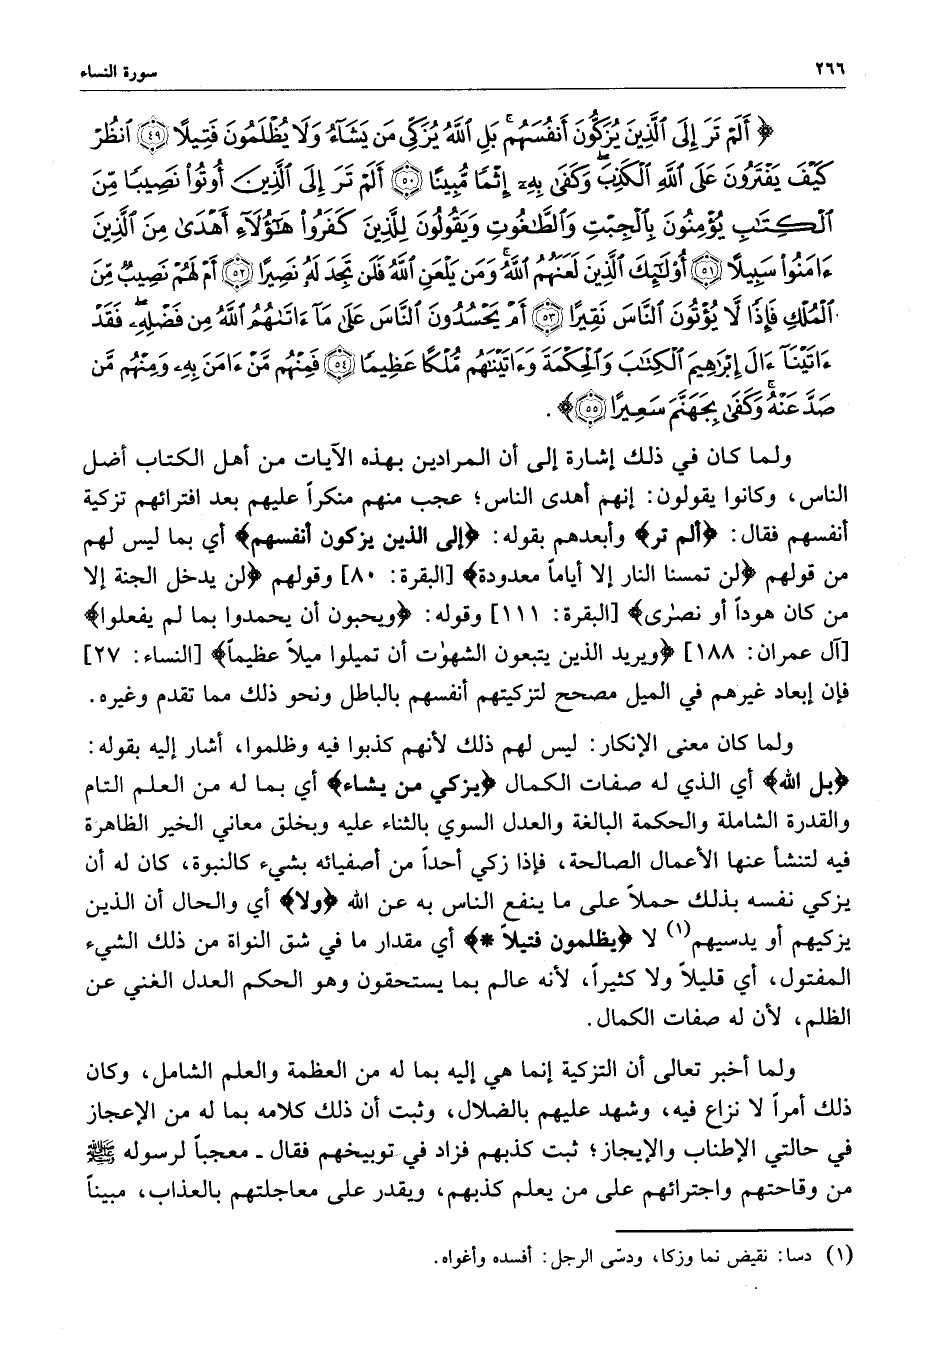 ٢٦٦ سورة النساء
﴿ أَلَمْ تَرَ إِلَى ٱلَّذِينَ يُزَكُّونَ أَنفُسَهُمْ ۚ بَلِ ٱللَّهُ يُزَكِّى مَن يَشَآءُ وَلَا يُظْلَمُونَ فَتِيلًا ٤٩ ٱنظُرْ
كَيْفَ يَفْتَرُونَ عَلَى ٱللَّهِ ٱلْكَذِبَ ۖ وَكَفَىٰ بِهِۦٓ إِثْمًا مُّبِينًا ٥٠ أَلَمْ تَرَ إِلَى ٱلَّذِينَ أُوتُوا۟ نَصِيبًا مِّنَ
ٱلْكِتَـٰبِ يُؤْمِنُونَ بِٱلْجِبْتِ وَٱلطَّـٰغُوتِ وَيَقُولُونَ لِلَّذِينَ كَفَرُوا۟ هَـٰٓؤُلَآءِ أَهْدَىٰ مِنَ ٱلَّذِينَ
ءَامَنُوا۟ سَبِيلًا ٥١ أُو۟لَـٰٓئِكَ ٱلَّذِينَ لَعَنَهُمُ ٱللَّهُ ۖ وَمَن يَلْعَنِ ٱللَّهُ فَلَن تَجِدَ لَهُۥ نَصِيرًا ٥٢ أَمْ لَهُمْ نَصِيبٌ مِّنَ
ٱلْمُلْكِ فَإِذًا لَّا يُؤْتُونَ ٱلنَّاسَ نَقِيرًا ٥٣ أَمْ يَحْسُدُونَ ٱلنَّاسَ عَلَىٰ مَآ ءَاتَىٰهُمُ ٱللَّهُ مِن فَضْلِهِۦ ۖ فَقَدْ
ءَاتَيْنَآ ءَالَ إِبْرَٰهِيمَ ٱلْكِتَـٰبَ وَٱلْحِكْمَةَ وَءَاتَيْنَـٰهُم مُّلْكًا عَظِيمًا ٥٤ فَمِنْهُم مَّنْ ءَامَنَ بِهِۦ وَمِنْهُم مَّن
صَدَّ عَنْهُ ۚ وَكَفَىٰ بِجَهَنَّمَ سَعِيرًا ٥٥﴾ .
ولما كان في ذلك إشارة إلى أن المرادين بهذه الآيات من أهل الكتاب أضل
الناس، وكانوا يقولون: إنهم أهدى الناس؛ عجب منهم منكراً عليهم بعد افترائهم تزكية
أنفسهم فقال: ﴿ألم تر﴾ وأبعدهم بقوله: ﴿إلى الذين يزكون أنفسهم﴾ أي بما ليس لهم
من قولهم ﴿لن تمسنا النار إلا أياماً معدودة﴾ [البقرة: ٨٠] وقولهم ﴿لن يدخل الجنة إلا
من كان هوداً أو نصرٰى﴾ [البقرة: ١١١] وقوله: ﴿ويحبون أن يحمدوا بما لم يفعلوا﴾
[آل عمران: ١٨٨] ﴿ويريد الذين يتبعون الشهوٰت أن تميلوا ميلاً عظيماً﴾ [النساء: ٢٧]
فإن إبعاد غيرهم في الميل مصحح لتزكيتهم أنفسهم بالباطل ونحو ذلك مما تقدم وغيره.
ولما كان معنى الإنكار: ليس لهم ذلك لأنهم كذبوا فيه وظلموا، أشار إليه بقوله:
﴿بل الله﴾ أي الذي له صفات الكمال ﴿يزكي من يشاء﴾ أي بما له من العلم التام
والقدرة الشاملة والحكمة البالغة والعدل السوي بالثناء عليه وبخلق معاني الخير الظاهرة
فيه لتنشأ عنها الأعمال الصالحة، فإذا زكي أحداً من أصفيائه بشيء كالنبوة، كان له أن
يزكي نفسه بذلك حملاً على ما ينفع الناس به عن الله ﴿ولا﴾ أي والحال أن الذين
يزكيهم أو يدسيهم(١) لا ﴿يظلمون فتيلاً *﴾ أي مقدار ما في شق النواة من ذلك الشيء
المفتول، أي قليلاً ولا كثيراً، لأنه عالم بما يستحقون وهو الحكم العدل الغني عن
الظلم، لأن له صفات الكمال.
ولما أخبر تعالى أن التزكية إنما هي إليه بما له من العظمة والعلم الشامل، وكان
ذلك أمراً لا نزاع فيه، وشهد عليهم بالضلال، وثبت أن ذلك كلامه بما له من الإعجاز
في حالتي الإطناب والإيجاز؛ ثبت كذبهم فزاد في توبيخهم فقال ـ معجباً لرسوله ﷺ
من وقاحتهم واجترائهم على من يعلم كذبهم، ويقدر على معاجلتهم بالعذاب، مبيناً
(١) دسا: نقيض نما وزكا، ودسّى الرجل: أفسده وأغواه.